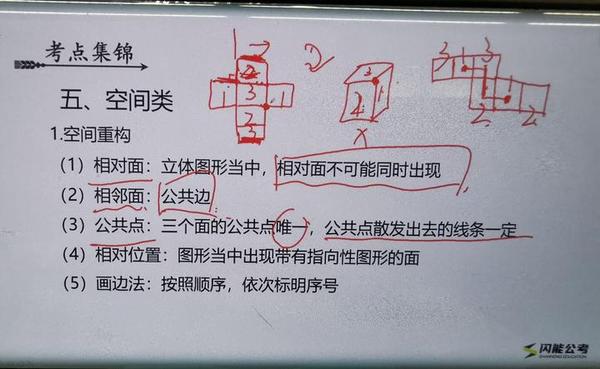 考点集锦
五、空间类
1.空间重构
（1）相对面：立体图形当中，相对面不可能同时出现
（2）相邻面：公共边
（3）公共点：三个面的公共点唯一，公共点散发出去的线条一定
（4）相对位置：图形当中出现带有指向性图形的面
（5）画边法：按照顺序，依次标明序号
闪能公考